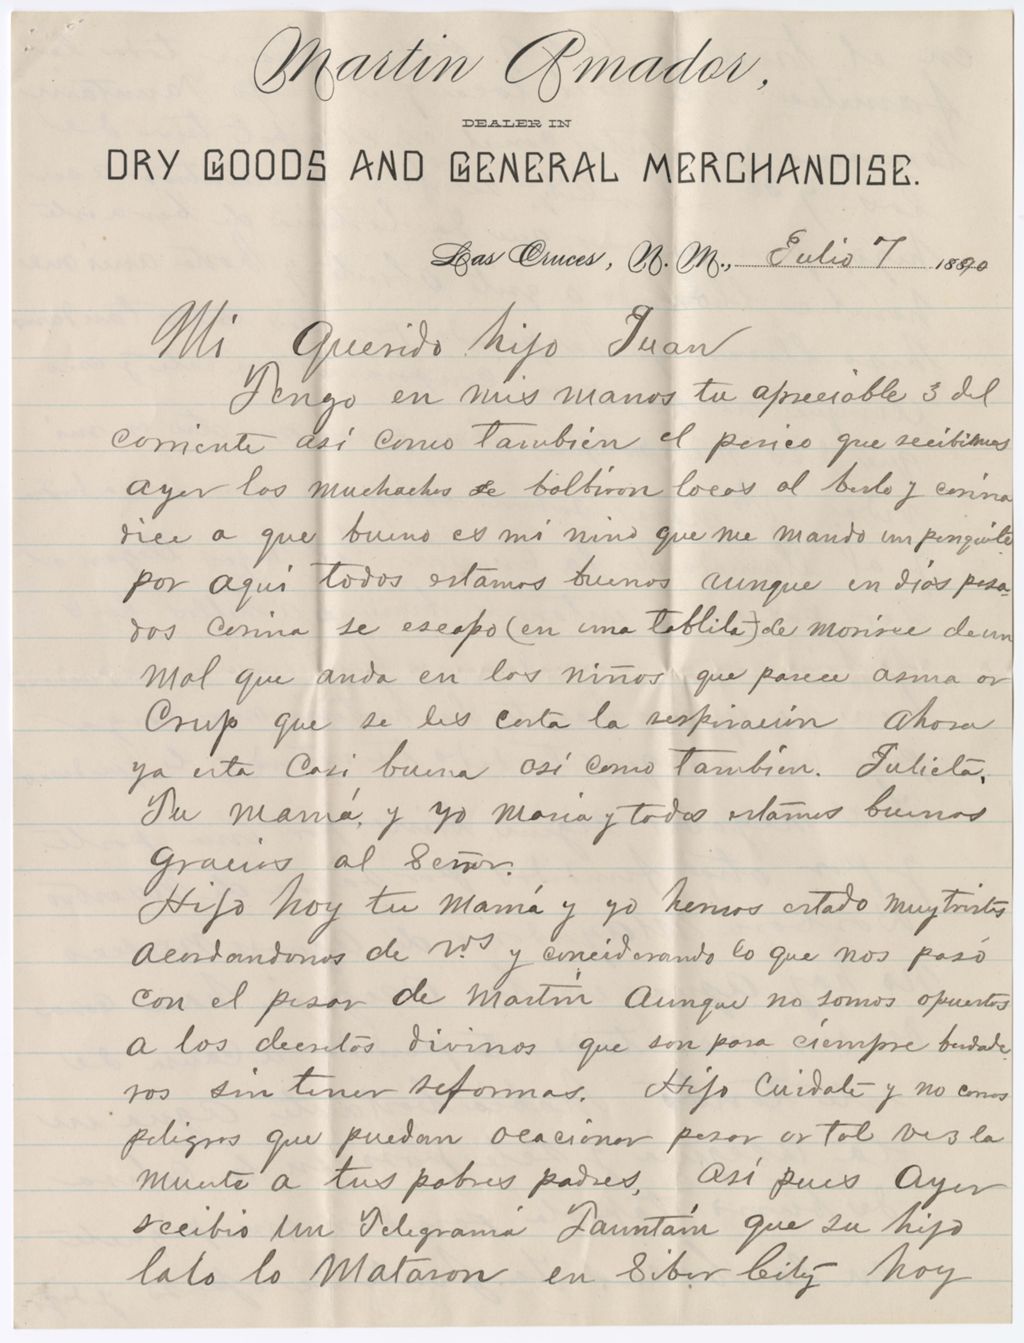 Martin Amador,
DEALER IN
DRY GOODS AND GENERAL MERCHANDISE.
Las Cruces, N. M., Julio 7 1890
Mi Querido hijo Juan
Tengo en mis manos tu apreciable 3 del
corriente así como también el perico que recibimos
ayer los muchachos se bolbiron locos al berlo y corina
dice a que bueno es mi nino que me mando un
por aquí todos estamos buenos aunque en días pasa-
dos Corina se escapo (en una tablita) de morirce de un
Mal que anda en los niños que parece asma or
Crup que se les corta la respiración ahora
ya esta Casi buena así como también. Julieta,
Tu mamá, y yo Maria y todos estámos buenos
gracias al Señor.
Hijo hoy tu Mamá y yo hemos estado muy tristes
acordandonos de Vds y conciderando lo que nos pasó
con el pesar de Martín Aunque no somos opuestos
a los decretos divinos que son para ciempre berdade
ros sin tener reformas. Hijo Cuidate y no corras
peligros que puedan ocacionar pesar or tal vez la
muerte a tus pobres padres, así pues Ayer
recibio un Telegramá Fauntáin que su hijo
lalo lo Mataron en Silber City hoy